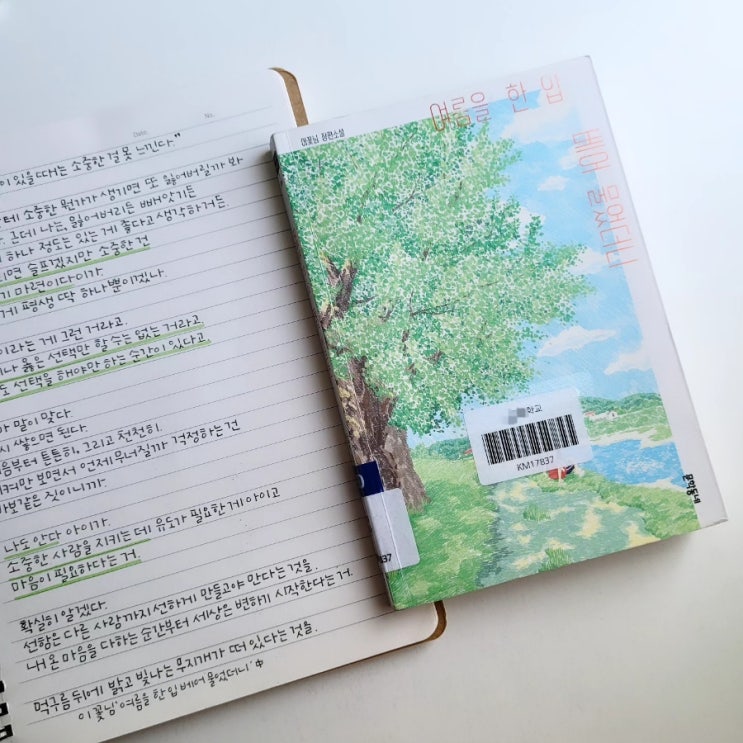 Date.
No.
이 있을 때는 소중한 걸 못 느낀다."
테 소중한 뭔가가 생기면 또 잃어버릴까 봐
근데 나는, 잃어버리든 빼앗기든
하나 정도는 있는 게 좋다고 생각하거든.
면 슬프겠지만 소중한 건
기 마련이다이가.
게 평생 딱 하나뿐이겠나.
이라는 게 그런 거라고.
나 옳은 선택만 할 수는 없는 거라고
도 선택을 해야만 하는 순간이 있다고.
말이 맞다.
시 쌓으면 된다.
음부터 튼튼히, 그리고 천천히.
커만 보면서 언제 무너질까 걱정하는 건
보같은 짓이니까.
나도 안다 아이가.
소중한 사람을 지키는 데 유도가 필요한 게 아이고
마음이 필요하다는 거.
확실히 알겠다.
선함은 다른 사람까지 선하게 만들고야 만다는 것을.
내 온 마음을 다하는 순간부터 세상은 변하기 시작한다는 거.
먹구름 뒤에 밝고 빛나는 무지개가 떠 있다는 것을.
이꽃님 '여름을 한 입 베어 물었더니' 中
이꽃님 장편소설
여름을 한 입
베어 물었더니
학교
KM17837
문학동네
837